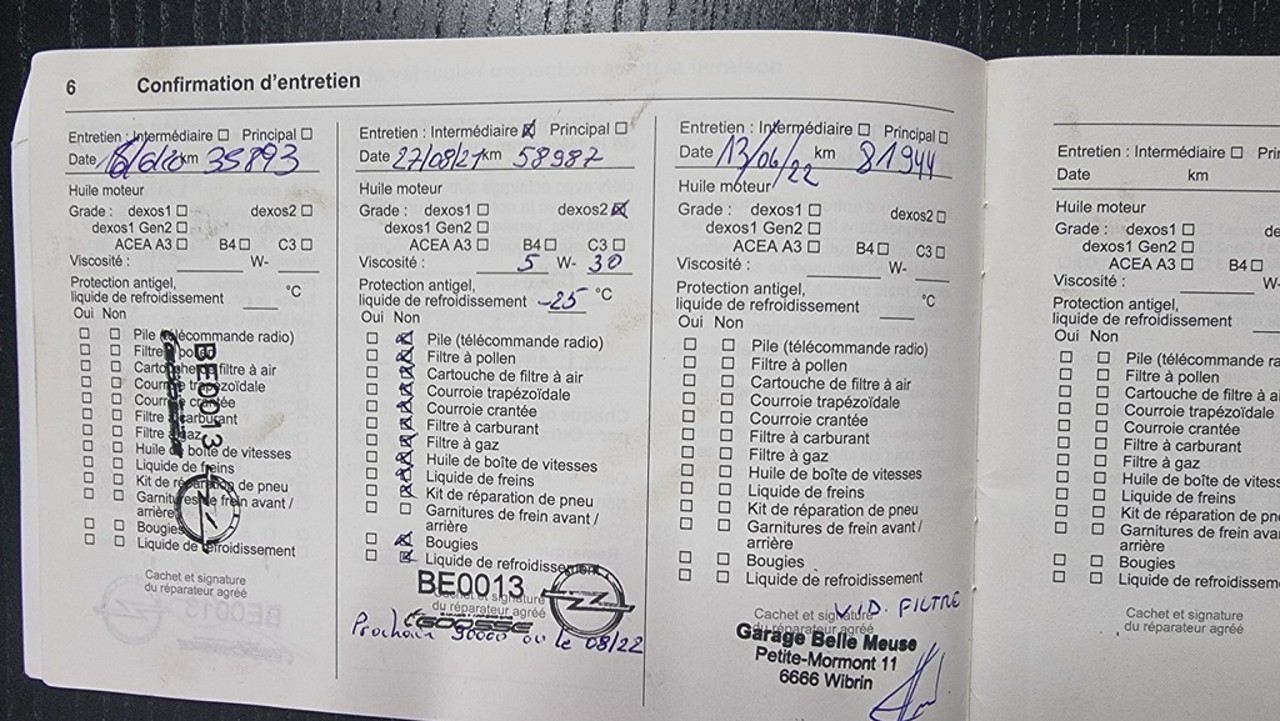 6 Confirmation d'entretien
Entretien : Intermédiaire Principal
Date 16/6/20 km 35893
Huile moteur
Grade : dexos1 dexos2
dexos1 Gen2
ACEA A3 B4 C3
Viscosité : W-
Protection antigel,
liquide de refroidissement °C
Oui Non
Pile (télécommande radio)
Filtre à pollen
Cartouche de filtre à air
Courroie trapézoïdale
Courroie crantée
Filtre à carburant
Filtre à gaz
Huile de boîte de vitesses
Liquide de freins
Kit de réparation de pneu
Garnitures de frein avant /
arrière
Bougies
Liquide de refroidissement
BE0013
Cachet et signature
du réparateur agréé
Entretien : Intermédiaire Principal
Date 27/08/21 km 58987
Huile moteur
Grade : dexos1 dexos2
dexos1 Gen2
ACEA A3 B4 C3
Viscosité : 5 W- 30
Protection antigel,
liquide de refroidissement -25 °C
Oui Non
Pile (télécommande radio)
Filtre à pollen
Cartouche de filtre à air
Courroie trapézoïdale
Courroie crantée
Filtre à carburant
Filtre à gaz
Huile de boîte de vitesses
Liquide de freins
Kit de réparation de pneu
Garnitures de frein avant /
arrière
Bougies
Liquide de refroidissement
BE0013
Cachet et signature
du réparateur agréé
Prochain 90000 ou le 08/22
Entretien : Intermédiaire Principal
Date 13/06/22 km 81944
Huile moteur
Grade : dexos1 dexos2
dexos1 Gen2
ACEA A3 B4 C3
Viscosité : W-
Protection antigel,
liquide de refroidissement °C
Oui Non
Pile (télécommande radio)
Filtre à pollen
Cartouche de filtre à air
Courroie trapézoïdale
Courroie crantée
Filtre à carburant
Filtre à gaz
Huile de boîte de vitesses
Liquide de freins
Kit de réparation de pneu
Garnitures de frein avant /
arrière
Bougies
Liquide de refroidissement
VID. FILTRE
Cachet et signature
du réparateur agréé
Garage Belle Meuse
Petite-Mormont 11
6666 Wibrin
Entretien : Intermédiaire Prin
Date km
Huile moteur
Grade : dexos1 de
dexos1 Gen2
ACEA A3 B4
Viscosité : W-
Protection antigel,
liquide de refroidissement
Oui Non
Pile (télécommande ra
Filtre à pollen
Cartouche de filtre à a
Courroie trapézoïdale
Courroie crantée
Filtre à carburant
Filtre à gaz
Huile de boîte de vitess
Liquide de freins
Kit de réparation de pn
Garnitures de frein ava
arrière
Bougies
Liquide de refroidissem
Cachet et signature
du réparateur agréé